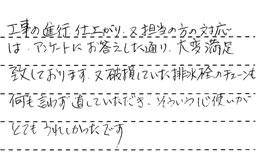 工事の進行、仕上がり、又担当の方の対応
は、アンケートにお答えした通り、大変満足
致しております。又破損していた排水栓のチェーンも
何も言わず直していただき、そういう心使いが
とてもうれしかったです